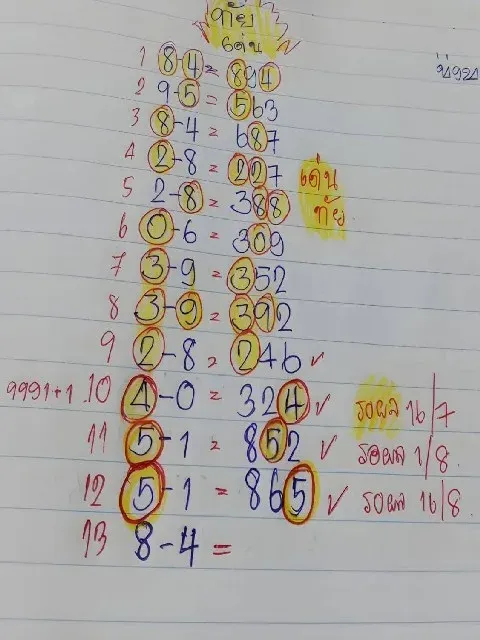 ทับ
เด่น
1 8-4 = 894
2 9-5 = 563
3 8-4 = 687
4 2-8 = 227
เด่น
5 2-8 = 388
ทับ
6 0-6 = 309
7 3-9 = 352
8 3-9 = 392
9 2-8 = 246 ✓
9991+1 .10 4-0 = 324 ✓ รอผล 16/7
11 5-1 = 852 ✓ รอผล 1/8.
12 5-1 = 865 ✓ รอผล 16/8.
13 8-4 =